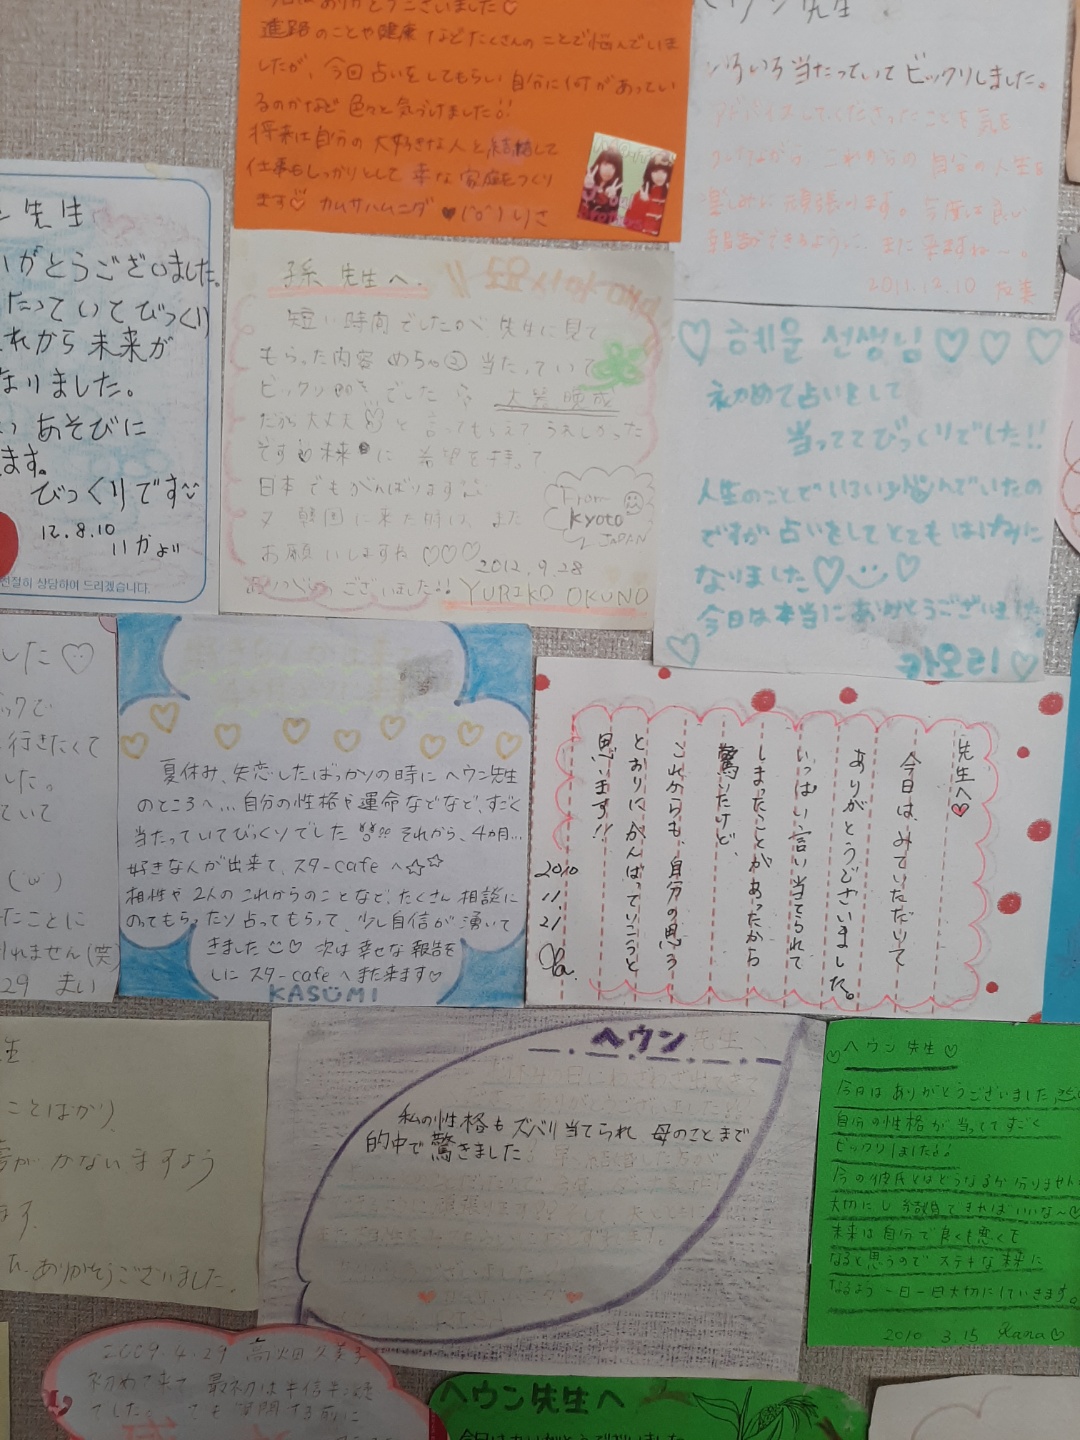 進路のことや健康などたくさんのことで悩んでいま
したが、今回占いをしてもらい自分に何があってい
るのかなど色々と気づけました!!
将来は自分の大好きな人と結婚して
仕事もしっかりとして幸な家庭をつくり
ます♡ カムサハムニダ ♥(^o^) りさ
ヘウン先生
いろいろ当たっていてビックリしました。
アドバイスしてくださったことを気を
これからの自分の人生を
楽しみに頑張ります。今度は良い
報告ができるように、また来ますね〜。
2011.12.10 友美
先生
がとうございました。
たっていてびっくり
れから未来が
なりました。
あそびに
ます。
びっくりです
12.8.10
친절히 상담하여 드리겠습니다.
孫先生へ
短い時間でしたが、先生に見て
もらった内容めちゃ②当たっていて
ビックリ でした 大器晩成
だから大丈夫♡と言ってもらえてうれしかった
です 未来に希望を持って
日本でもがんばります
又韓国に来た時は、また
お願いしますね♡♡♡
From
Kyoto
JAPAN
2012.9.28
ありがとうございました!!
YURIKO OKUNO
♡ 혜운 선생님 ♡ ♡ ♡
初めて占いをして
当っててびっくりでした!!
人生のことでいろいろ悩んでいたの
ですが占いをしてとてもはげみに
なりました♡ ♡
今日は本当にありがとうございました
♡ 카오리 ♡
した♡
行きたくて
した。
ていて
たことに
れません(笑)
29 まい
夏休み、失恋したばっかりの時にヘウン先生
のところへ… 自分の性格や運命などなど、すごく
当たっていてびっくりでした!! それから、4ヵ月…
好きな人が出来て、スターcafeへ☆☆
相性や2人のこれからのことなど、たくさん相談に
のってもらったり占ってもらって、少し自信が湧いて
きました ♡ 次は幸せな報告を
しにスターcafeへまた来ます♡
KASUMI
先生へ♥
今日は、みていただいて
ありがとうございました。
いっぱい言い当てられて
しまったことがあったから
驚いたけど、
これからも、自分の思う
とおりにがんばっていこうと
思います!!
2010
11.
21
ことばかり
かないますよう
ます。
ありがとうございました。
ヘウン先生へ
私の性格もズバリ当てられ 母のことまで
的中で驚きました
♡ヘウン先生♡
今日はありがとうございました
自分の性格が当っててすごく
ビックリしました!!
今の彼氏とはどうなるか分かりません
大切にし結婚できればいいな〜♡
未来は自分で良くも悪くも
なると思うのでステキな未来に
なるよう一日一日大切にしていきます。
2010 3.15 Kana♡
2009.4.29 高畑久美子
初めて来て最初は半信半疑
でした。でも質問する前に
ヘウン先生へ
今日はありがとうございました